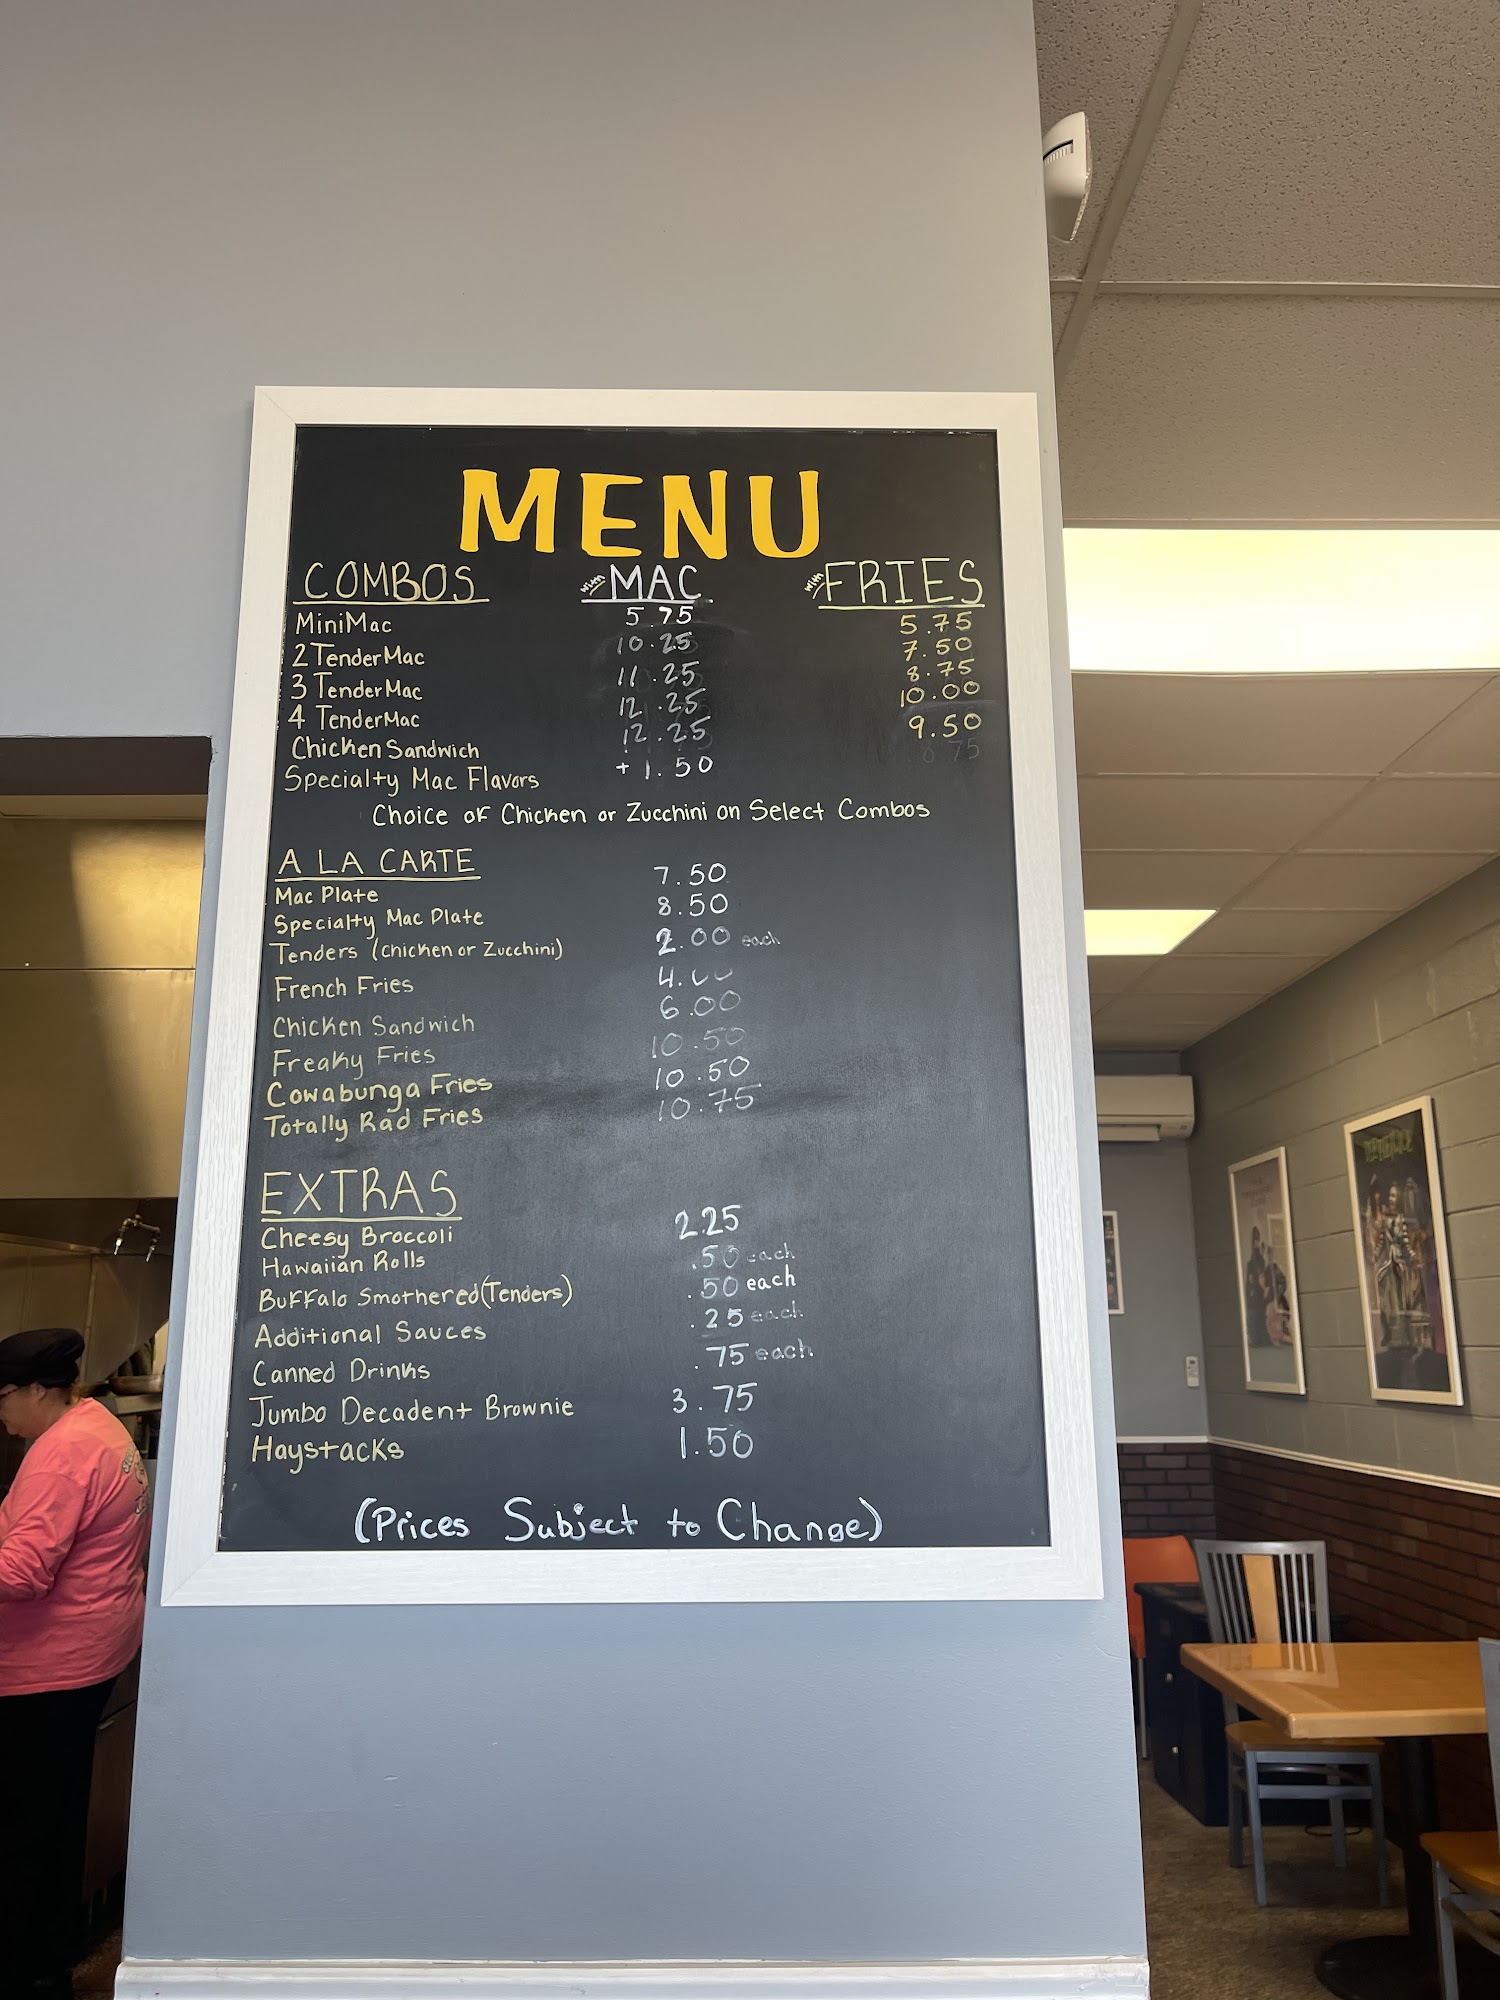 MENU
COMBOS with MAC with FRIES
MiniMac 5.75 5.75
2 TenderMac 10.25 7.50
3 TenderMac 11.25 8.75
4 TenderMac 12.25 10.00
Chicken Sandwich 12.25 9.50
Specialty Mac Flavors +1.50
Choice of Chicken or Zucchini on Select Combos
A LA CARTE
Mac Plate 7.50
Specialty Mac Plate 8.50
Tenders (Chicken or Zucchini) 2.00 each
French Fries 4.00
Chicken Sandwich 6.00
Freaky Fries 10.50
Cowabunga Fries 10.50
Totally Rad Fries 10.75
EXTRAS
Cheesy Broccoli 2.25
Hawaiian Rolls .50 each
Buffalo Smothered (Tenders) .50 each
Additional Sauces .25 each
Canned Drinks .75 each
Jumbo Decadent Brownie 3.75
Haystacks 1.50
(Prices Subject to Change)